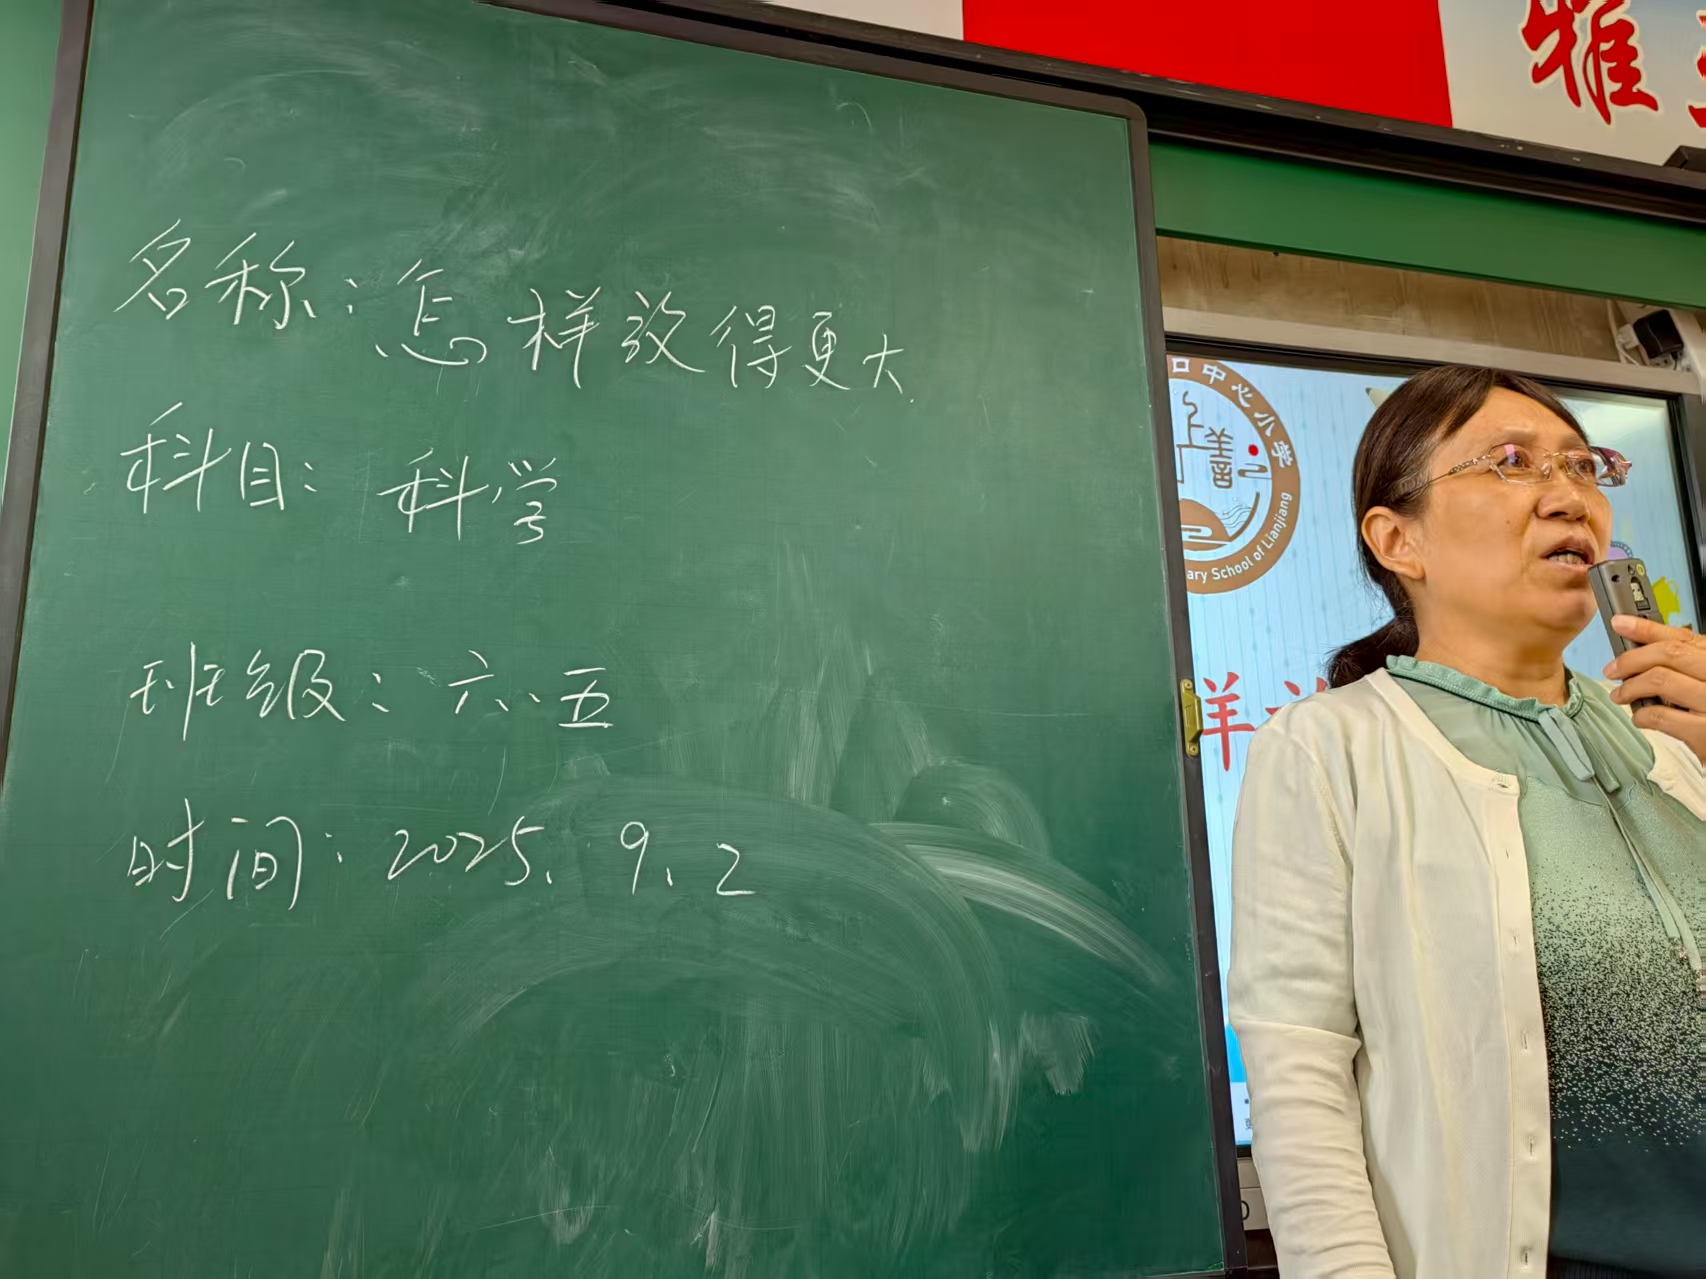 名称：怎样放得更大
科目：科学
班级：六、五
时间：2025.9.2
雅
口中心小学
上善
ary School of Lianjiang
样